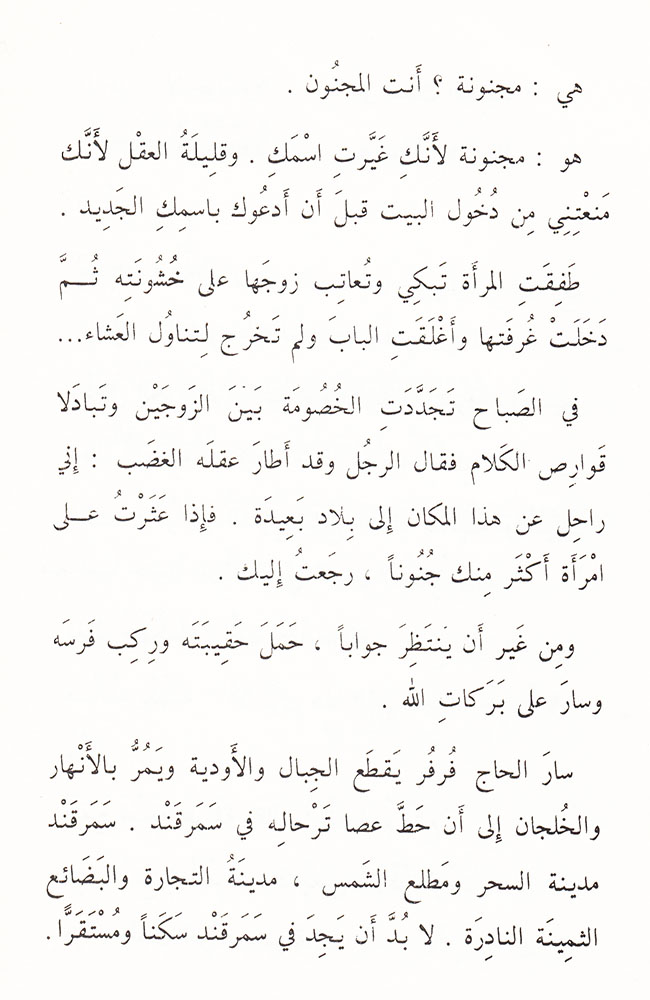 هي : مجنونة ؟ أَنت المجنُون .
هو : مجنونة لأَنَّكِ غَيَّرتِ اسْمَكِ . وقلِيلَةُ العقْل لأَنَّك
مَنعْتِنِي مِن دُخُول البيت قبلَ أَن أَدعُوك باسمِكِ الجَدِيد .
طَفِقَتِ المرأَة تَبكِي وتُعاتِب زوجَها على خُشُونَتِه ثُـمَّ
دَخَلَتْ غُرفَتها وأَغْلَقَتِ البابَ ولم تَخرُج لِتناوُل العَشاء...
في الصَباح تَجَدَّدَتِ الخُصُومَة بَيْنَ الزَوجَيْن وتَبادَلا
قَوارِص الكَلام فقال الرجُل وقد أَطارَ عقلَه الغضَب : إِني
راحِل عن هذا المكان إِلى بِلاد بَعِيدَة . فإِذا عَثَرْتُ عـلى
امْرَأَة أَكْثَر مِنك جُنُوناً ، رجَعتُ إِليك .
ومِن غَير أَن يَنتَظِرَ جواباً ، حَمَلَ حَقِيبَتَه ورِكِب فَرسَه
وسارَ على بَرَكاتِ الله .
سارَ الحاج فُرفُر يَقطَع الجِبال والأَودية ويَمُرُّ بالأَنْهار
والخُلجان إِلى أَن حَطَّ عصا تَرْحالِه في سَمَرقَنْد . سَمَرقَنْد
مدينة السحر ومَطلع الشَمس ، مدينَةُ التجارة والبَضَائع
الثمِينَة النادِرَة . لا بُدَّ أَن يَجِدَ في سَمَرقَنْد سَكَناً ومُسْتَقَرًّا .